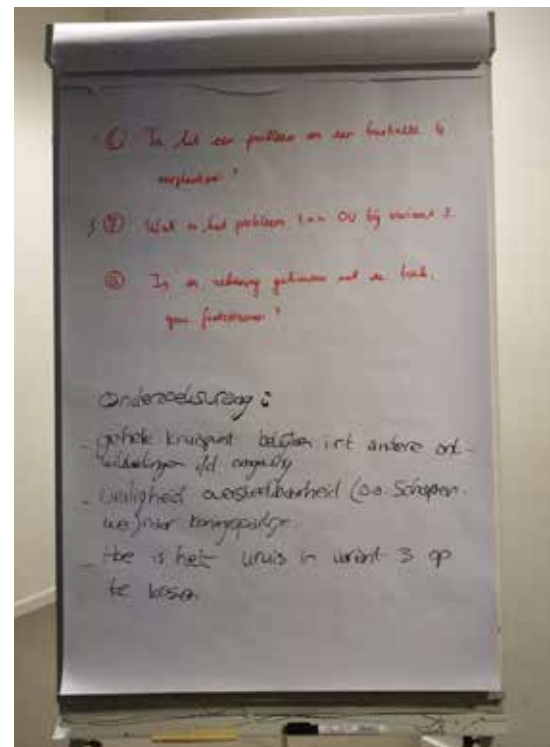 ① Is het een probleem om een bushalte te
verplaatsen?
② Wat is het probleem t.a.v. OV bij variant 2
③ Is er rekening gehouden met de
geen fietsstromen?
Onderzoeksvraag:
- gehele kruispunt bekijken irt andere ont-
wikkelingen i/d omgeving
- Veiligheid oversteekbaarheid (o.a. Schapen-
weg) naar
- Hoe is het kruis in variant 3 op
te lossen